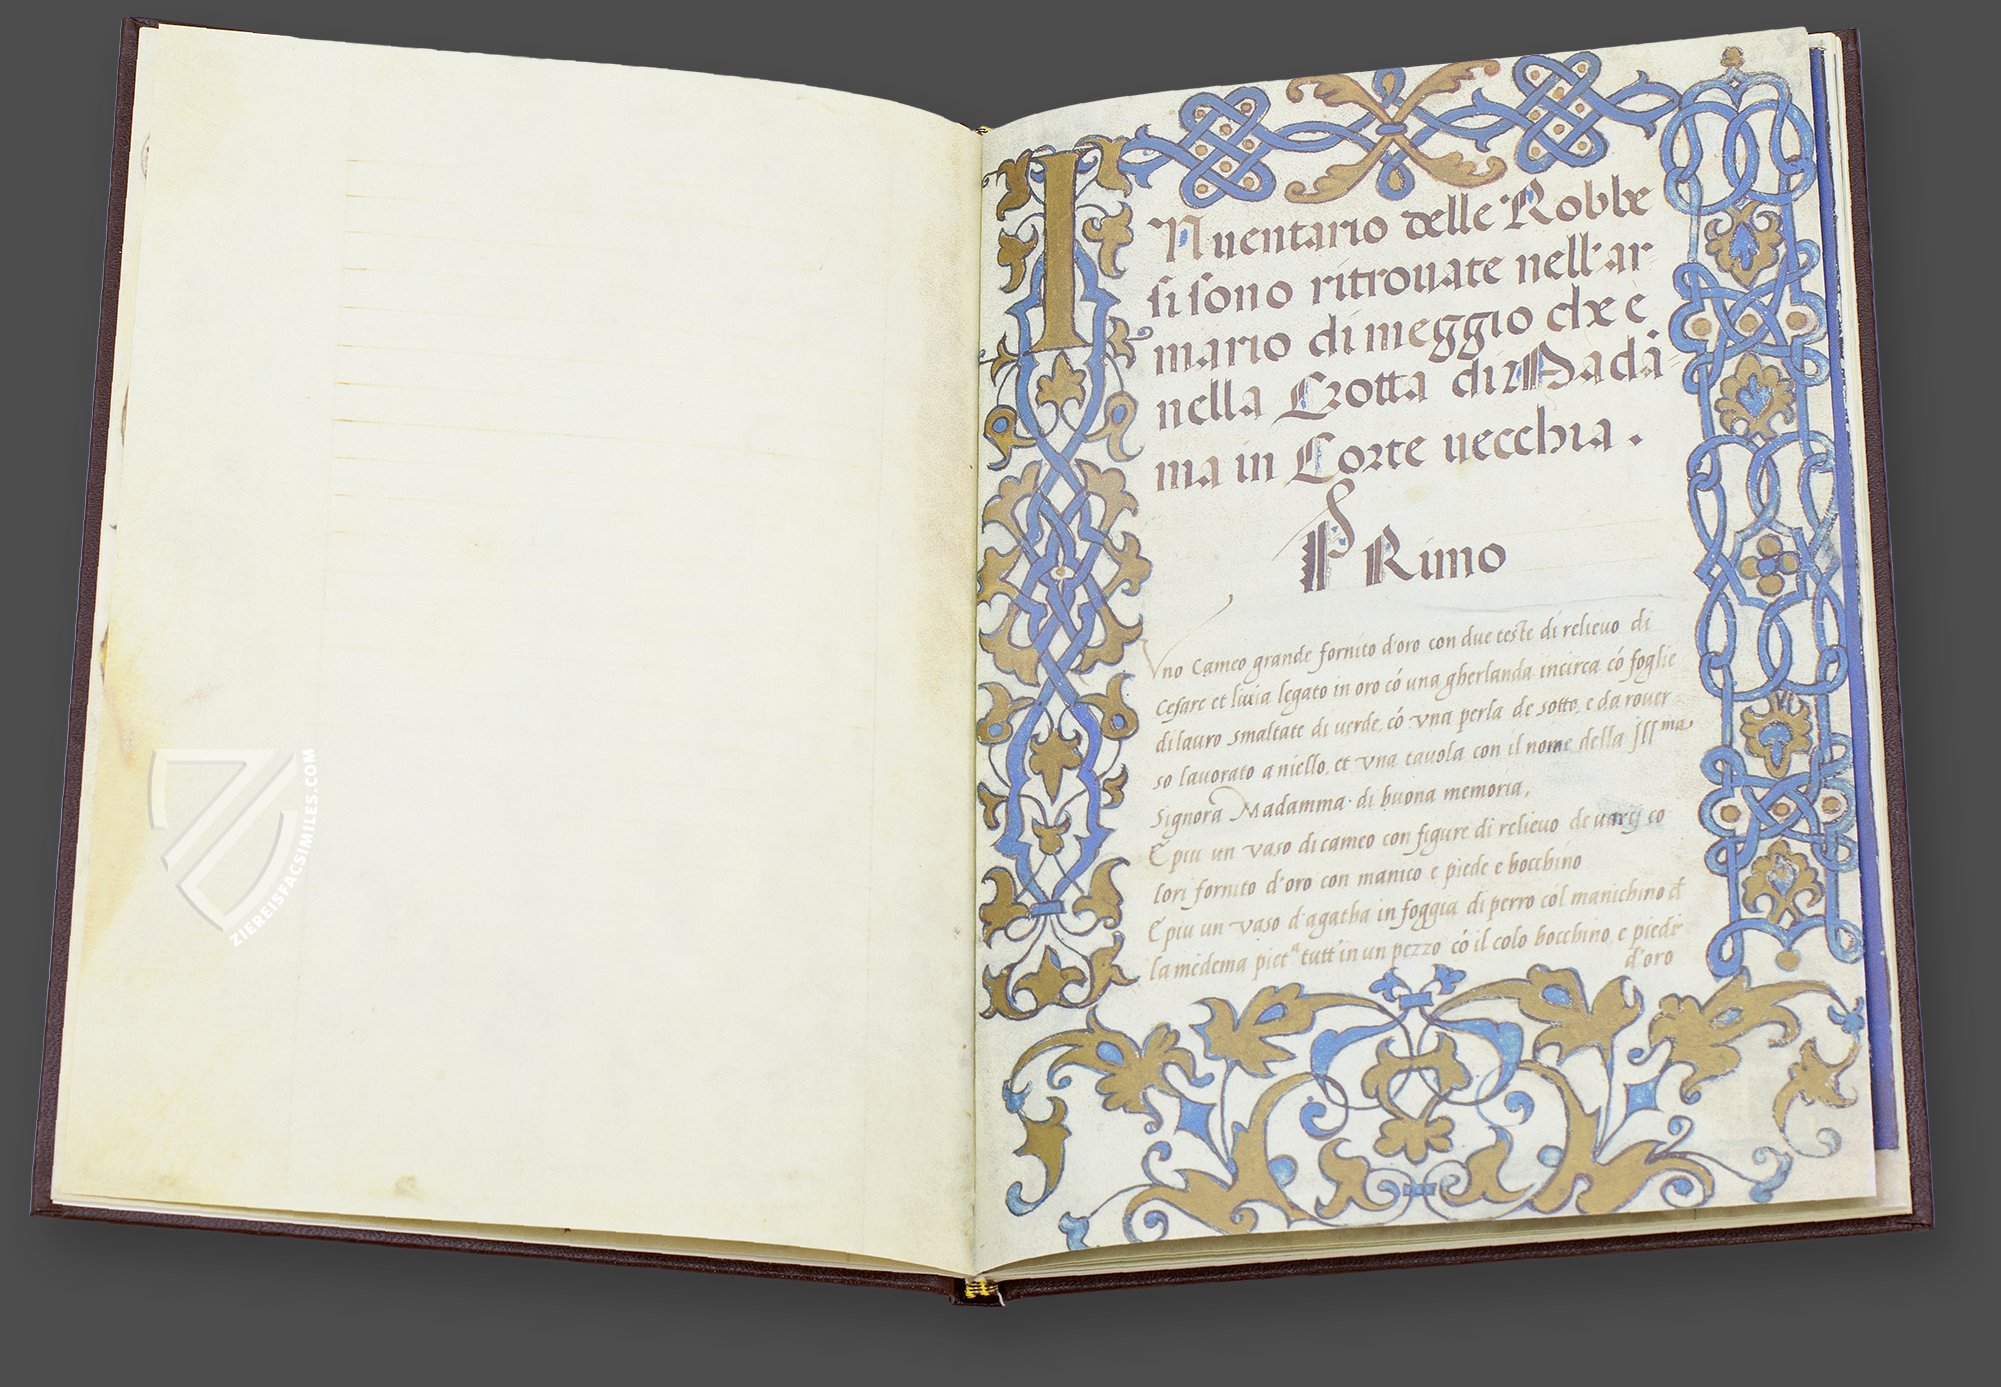 INuentario delle Robbe
si sono ritrouate nell'ar
mario di meggio che è
nella Grotta di Madā
ma in Corte uecchia.
PRimo
Vno Cameo grande fornito d'oro con due teste di relieuo di
Cesare et liuia legato in oro cō una gherlanda incirca cō foglie
di lauro smaltate di uerde, cō vna perla de sotto, e da rouer
so lauorato a niello, et vna tauola con il nome della Jllma
Signora Madamma di buona memoria,
E piu un vaso di cameo con figure di relieuo de uarij co
lori fornito d'oro con manico e piede e bocchino
E piu un vaso d'agatha in foggia di perro col manichino đ
la medema pieta tutt'in un pezzo cō il colo bocchino e piede
d'oro
ZIEREISFACSIMILES.COM